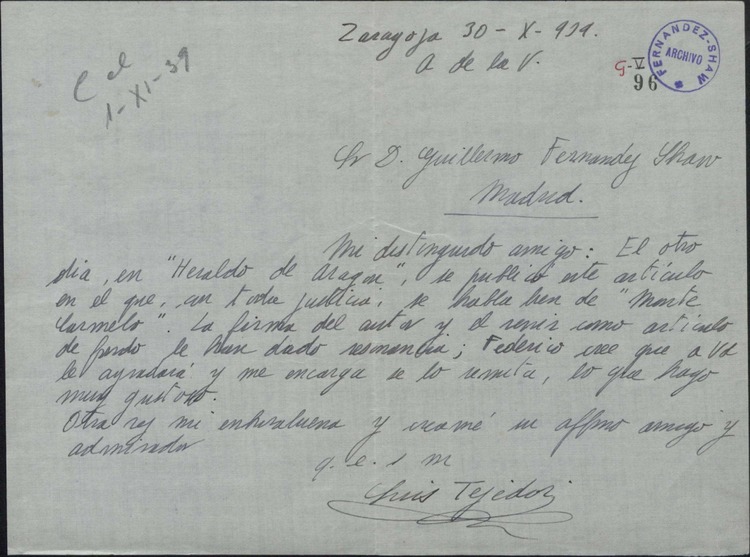 C el
1-XI-39
Zaragoza 30-X-939.
A de la V.
FERNANDEZ-SHAW
ARCHIVO
G-V
96
Sr D. Guillermo Fernandez Shaw
Madrid.
Mi distinguido amigo: El otro
dia, en "Heraldo de Aragon", se publicó este artículo
en el que, con toda justicia, se habla bien de "Monte
Carmelo". La firma del autor y el venir como artículo
de fondo le han dado resonancia; Federico cree que a Vd
le agradará y me encarga se lo remita, lo que hago
muy gustoso.
Otra vez mi enhorabuena y creame su affmo amigo y
admirador
q. e. s m
Luis Tejedor